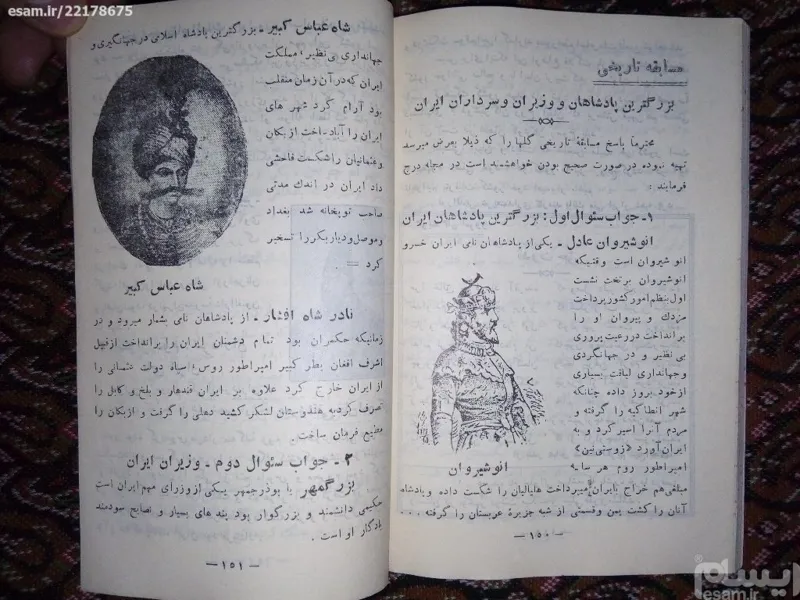 مسابقه تاریخی
بزرگترین پادشاهان و وزیران و سرداران ایران
محترماً پاسخ مسابقهٔ تاریخی گلها را که ذیلا بعرض میرسد
تهیه نموده در صورت صحیح بودن خواهشمند است در مجله درج
فرمایند :
۱- جواب سئوال اول: بزرگترین پادشاهان ایران
انوشیروان عادل - یکی از پادشاهان نامی ایران خسرو
انوشیروان است وقتیکه
انوشیروان برتخت نشست
اول بنظم امور کشور پرداخت
مزدك و پیروان او را
برانداخت در رعیت پروری
بی نظیر و در جهانگردی
و جهانداری لیاقت بسیاری
از خود بروز داده چنانکه
شهر انطاکیه را گرفته و
مردم آنرا اسیر کرد و به
ایران آورد «ژوستی نین»
امپراطور روم هر ساله
انوشیروان
مبلغی هم خراج بایران میپرداخت هپالیان را شکست داده و پادشاه
آنان را کشت یمن وقسمتی از شبه جزیرهٔ عربستان را گرفته . . .
— ۱۵۰ —
شاه عباس کبیر - بزرگترین پادشاه اسلامی در جهانگیری و
جهانداری بی نظیر، مملکت
ایران که در آن زمان منقلب
بود آرام کرد شهر های
ایران را آباد ساخت ازبکان
و عثمانیان را شکست فاحشی
داد ایران در اندك مدتی
صاحب توپخانه شد بغداد
وموصل و دیاربکر را تسخیر
کرد = .
شاه عباس کبیر
نادر شاه افشار - از پادشاهان نامی بشمار میرود و در
زمانیکه حکمران بود تمام دشمنان ایران را برانداخت از قبیل
اشرف افغان پطر کبیر امپراطور روس، سپاه دولت عثمانی را
از ایران خارج کرد علاوه بر ایران قندهار و بلخ و کابل را
تصرف کرد به هندوستان لشکر کشید دهلی را گرفت و ازبکان را
مطیع فرمان ساخت .
۲ - جواب سئوال دوم - وزیران ایران
بزرگمهر یا بوذرجمهر یکی از وزرای مهم ایران است
حکیمی دانشمند و بزرگوار بود پند های بسیار و نصایح سودمند
یادگار او است .
— ۱۵۱ —
esam.ir/22178675
ایسام
esam.ir